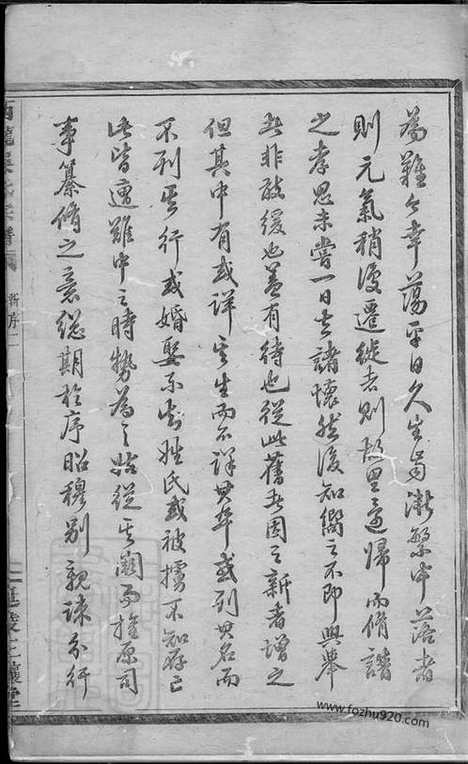 為難今幸蕩平日久生齒漸繁中落者
則元氣稍復遷徙者則故里言歸而脩譜
之孝思未嘗一日去諸懷然後知向之不即興舉
者非敢緩也蓋有待也從此舊者因之新者增之
但其中有或詳其生而不詳其卒或列其名而
不列其行或婚娶不知姓氏或被擄不知存亡
此皆遭難中之時勢為之路從其闕而推原司
事纂脩之意總期於序昭穆別親疎分行
新序
www.fozhu920.com